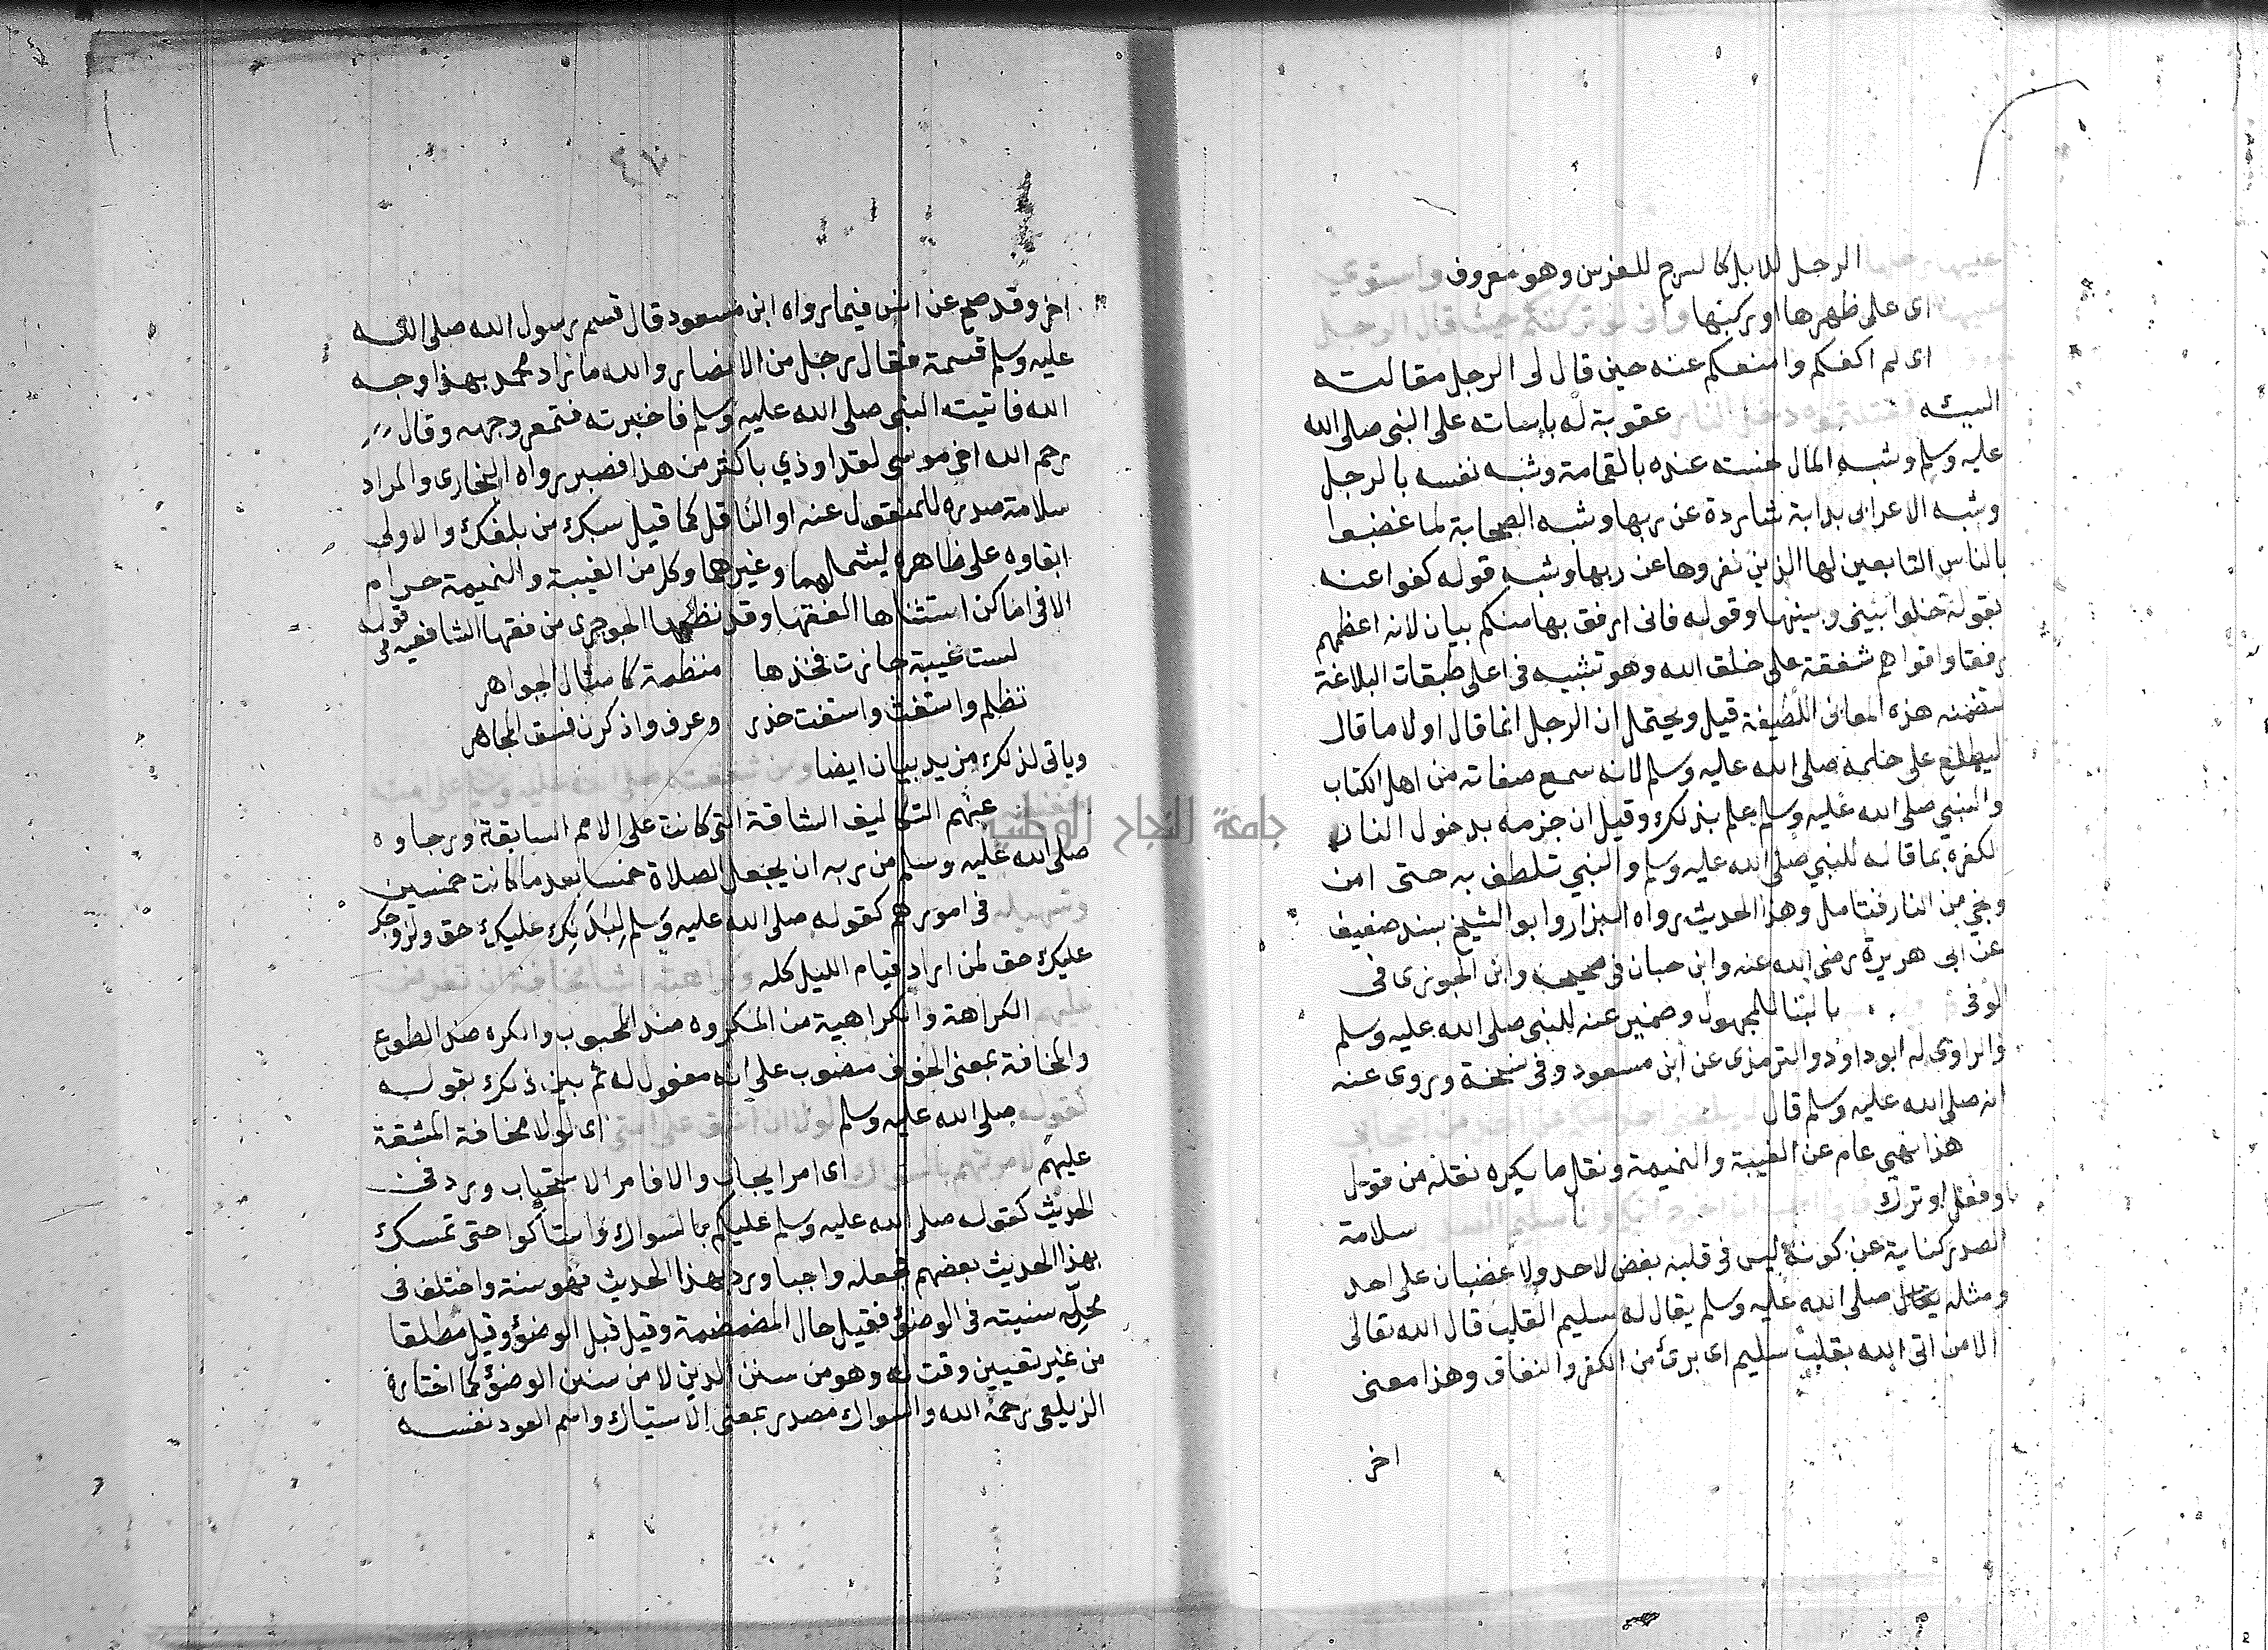 عليها رحلها الرحل للابل كالسرج للفرس وهو معروف واستوى
عليها اى على ظهرها او ركبها وانى لو تركتكم حيث قال الرجل
اى لم اكفكم وامنعكم عنه حين قال لى الرجل مقالته
السيئه فقتلتموه دخل النار عقوبة له باساته على النبى صلى الله
عليه وسلم وشبه المال عنده بالقمامة وشبه نفسه بالرجل
وشبه الاعرابى بدابة شاردة عن ربها وشبه الصحابة لما غضبوا
بالناس التابعين لها الذين نفروها عن ربها وشبه قوله كفوا عنه
بقوله خلوا بينى وبينها وقوله فانى ارفق بها منكم بيان لانه اعظمهم
رفقا واقواهم شفقة على خلق الله وهو تشبيه فى اعلى طبقات البلاغة
هذه المعانى اللطيفة قيل ويحتمل ان الرجل انما قال اولا ما قال
ليطلع على حلمه صلى الله عليه وسلم لانه سمع صفاته من اهل الكتاب
والنبي صلى الله عليه وسلم علم بذلك وقيل ان جزمه بدخول النار
لكفره بما قاله للنبي صلى الله عليه وسلم والنبي تلطف به حتى امن
ونجي من النار فتامل وهذا الحديث رواه البزار وابو الشيخ بسند ضعيف
عن ابى هريرة رضى الله عنه وابن حبان فى صحيحه وابن الجوزى فى
الوفى بالبنا للمجهول وضمير عنه للنبى صلى الله عليه وسلم
والراوى له ابو داود والترمذى عن ابن مسعود وفى نسخة وروى عنه
انه صلى الله عليه وسلم قال
هذا نهي عام عن الغيبة والنميمة ونقل ما يكره نقله من قول
او فعل او ترك سلامة
الصدر كناية عن كونه ليس فى قلبه بغض لاحد ولا غضبان على احد
ومثله صلى الله عليه وسلم يقال له سليم القلب قال الله تعالى
الا من اتى الله بقلب سليم اى برئ من الكفر والنفاق وهذا معنى
اخر
٤٧
اخر وقد صح عن انس فيما رواه ابن مسعود قال قسم رسول الله صلى الله
عليه وسلم قسمة فقال رجل من الانصار والله ما اراد محمد بهذا وجه
الله فاتيت النبى صلى الله عليه وسلم فاخبرته فتمعر وجهه وقال
رحم الله اخى موسى لقد اوذي باكثر من هذا فصبر رواه البخارى والمراد
سلامة صدره للمنقول عنه او الناقل كما قيل سبك من بلغك والاولى
ابقاوه على ظاهره ليشملهما وغيرهما وكل من الغيبة والنميمة حرام
الا فى اماكن استثناها الفقها وقد نظمها الجوجرى من فقها الشافعيه فى قوله
لست غيبة جازت فخذها منظمة كامثال الجواهر
تظلم واستغث واستفت حذر وعرف واذكرن فسق المجاهر
وياتى لذلك مزيد بيان ايضا ومن شفقته صلى الله عليه وسلم على امته
عنهم التكاليف الشاقة التى كانت على الامم السابقة ورجاوه
صلى الله عليه وسلم من ربه ان يجعل الصلاة خمسا بعد ما كانت خمسين
وتسهيله فى امورهم كقوله صلى الله عليه وسلم لبدنك عليك حق ولزوجك
عليك حق لمن اراد قيام الليل كله وكراهته اشيا مخافة ان تفرض
عليهم الكراهة والكراهية من المكروه ضد المحبوب والكره ضد الطوع
والمخافة بمعنى الخوف منصوب على انه مفعول له ثم بين ذلك بقوله
لقوله صلى الله عليه وسلم لولا ان اشق على امتى اى لولا مخافة المشقة
عليهم لامرتهم بالسواك اى امر ايجاب والا فامر الاستحباب ورد فى
الحديث كقوله صلى الله عليه وسلم عليكم بالسواك واستاكوا حتى تمسك
بهذا الحديث بعضهم فجعله واجبا ورد بهذا الحديث فهو سنة واختلف فى
محله سنيته فى الوضؤ فقيل حال المضمضة وقيل قبل الوضؤ وقيل مطلقا
من غير تعيين وقت له وهو من سنن الدين لا من سنن الوضؤ كما اختاره
الزيلعى رحمه الله والسواك مصدر بمعنى الاستياك واسم العود نفسه
جامعة النجاح الوطنية